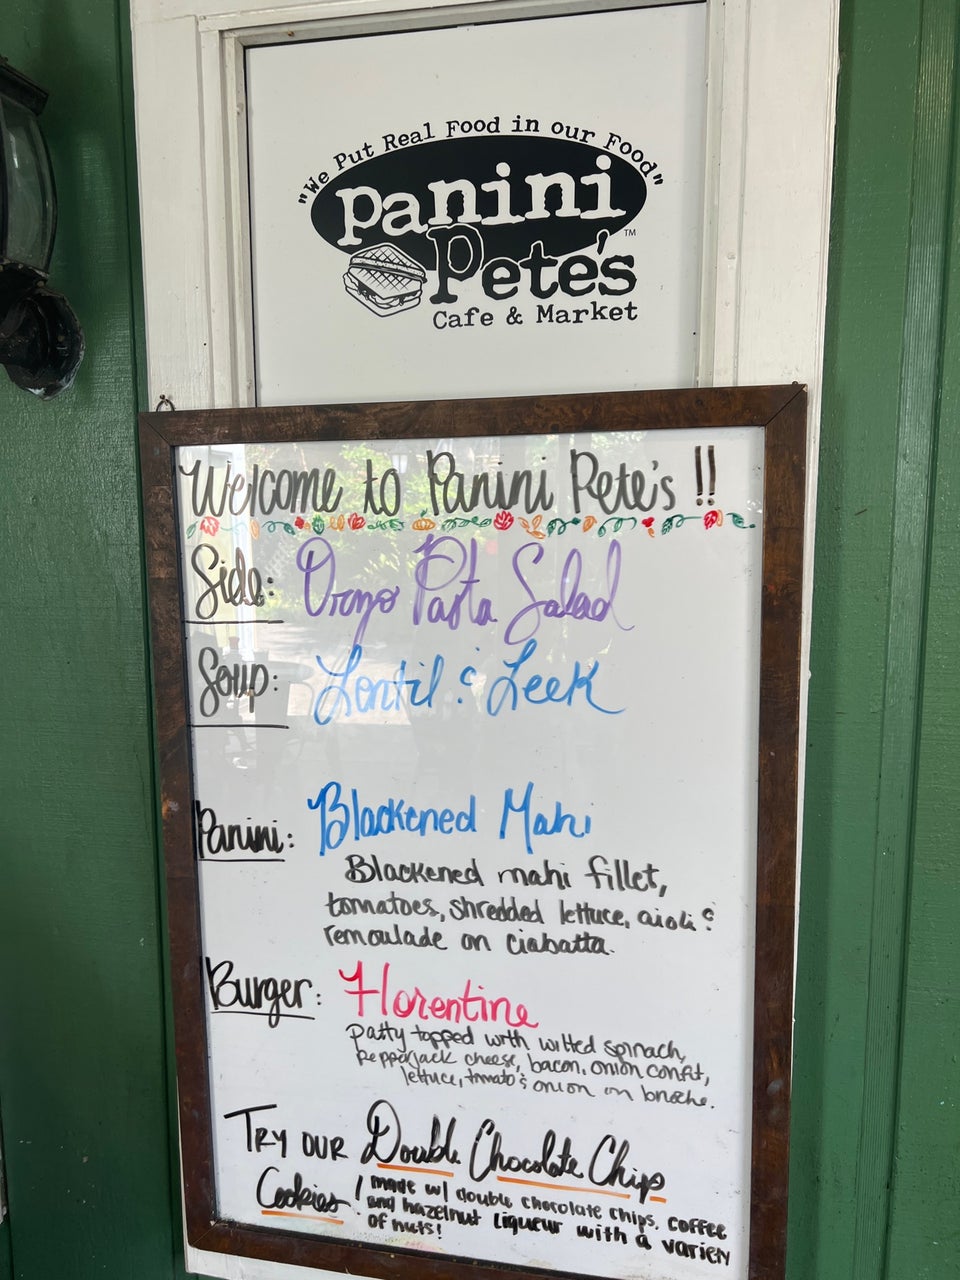 "We Put Real Food in our Food"
panini
Pete's™
Cafe & Market
Welcome to Panini Pete's!!
Side: Orzo Pasta Salad
Soup: Lentil & Leek
Panini: Blackened Mahi
Blackened mahi fillet,
tomatoes, shredded lettuce, aioli &
remoulade on ciabatta.
Burger: Florentine
Patty topped with wilted spinach,
Pepperjack cheese, bacon, onion confit,
lettuce, tomato & onion on brioche.
TRY OUR Double Chocolate Chip
Cookies! made w/ double chocolate chips, coffee
and hazelnut liqueur with a variety
of nuts!